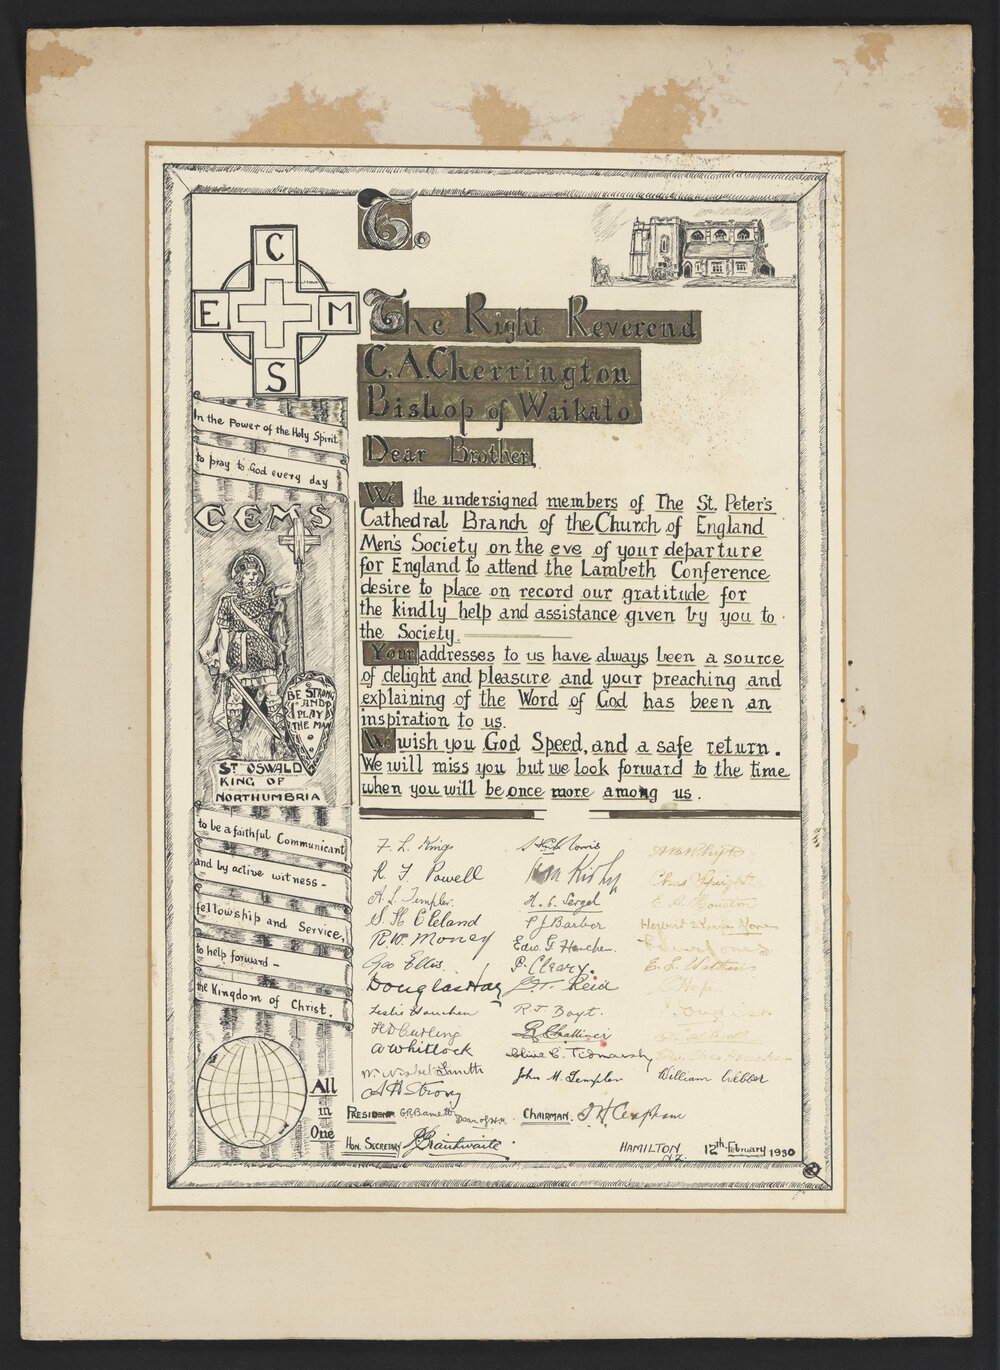 To.
C
E M
S
The Right Reverend
C.A.Cherrington
Bishop of Waikato
Dear Brother,
In the Power of the Holy Spirit
to pray to God every day
CEMS
BE STRONG
AND
PLAY
THE MAN
ST OSWALD
KING OF
NORTHUMBRIA
to be a faithful Communicant
and by active witness-
fellowship and Service,
to help forward-
the Kingdom of Christ.
All
in
One
We the undersigned members of The St. Peter's
Cathedral Branch of the Church of England
Men's Society on the eve of your departure
for England to attend the Lambeth Conference
desire to place on record our gratitude for
the kindly help and assistance given by you to
the Society.
Your addresses to us have always been a source
of delight and pleasure and your preaching and
explaining of the Word of God has been an
inspiration to us.
We wish you God Speed, and a safe return.
We will miss you but we look forward to the time
when you will be once more among us.
F. L. Kings
R. F. Powell
A. L. Templer.
S. H Cleland
R.W. Money
Geo Ellis.
Douglas Hay
Leslie Hanchen
H D Curling
A Whitlock
W. Nisbet Smith
A H Strong
Norris
H. C. Sergel
P J Barber
Edw. G. Hanchen.
P. Cleary.
Reid
R J Boyt.
R Challinor
Clive C. Tidmarsh
John M. Templer
A B Whyte
Chas Speight
Jones
E. S. Watkins
Hope
William Webber
PRESIDENT. G.R. Barnett Dean of H.N. CHAIRMAN. J H Clapham
HON. SECRETARY Brantwaite
HAMILTON 12th February 1930
N.Z.